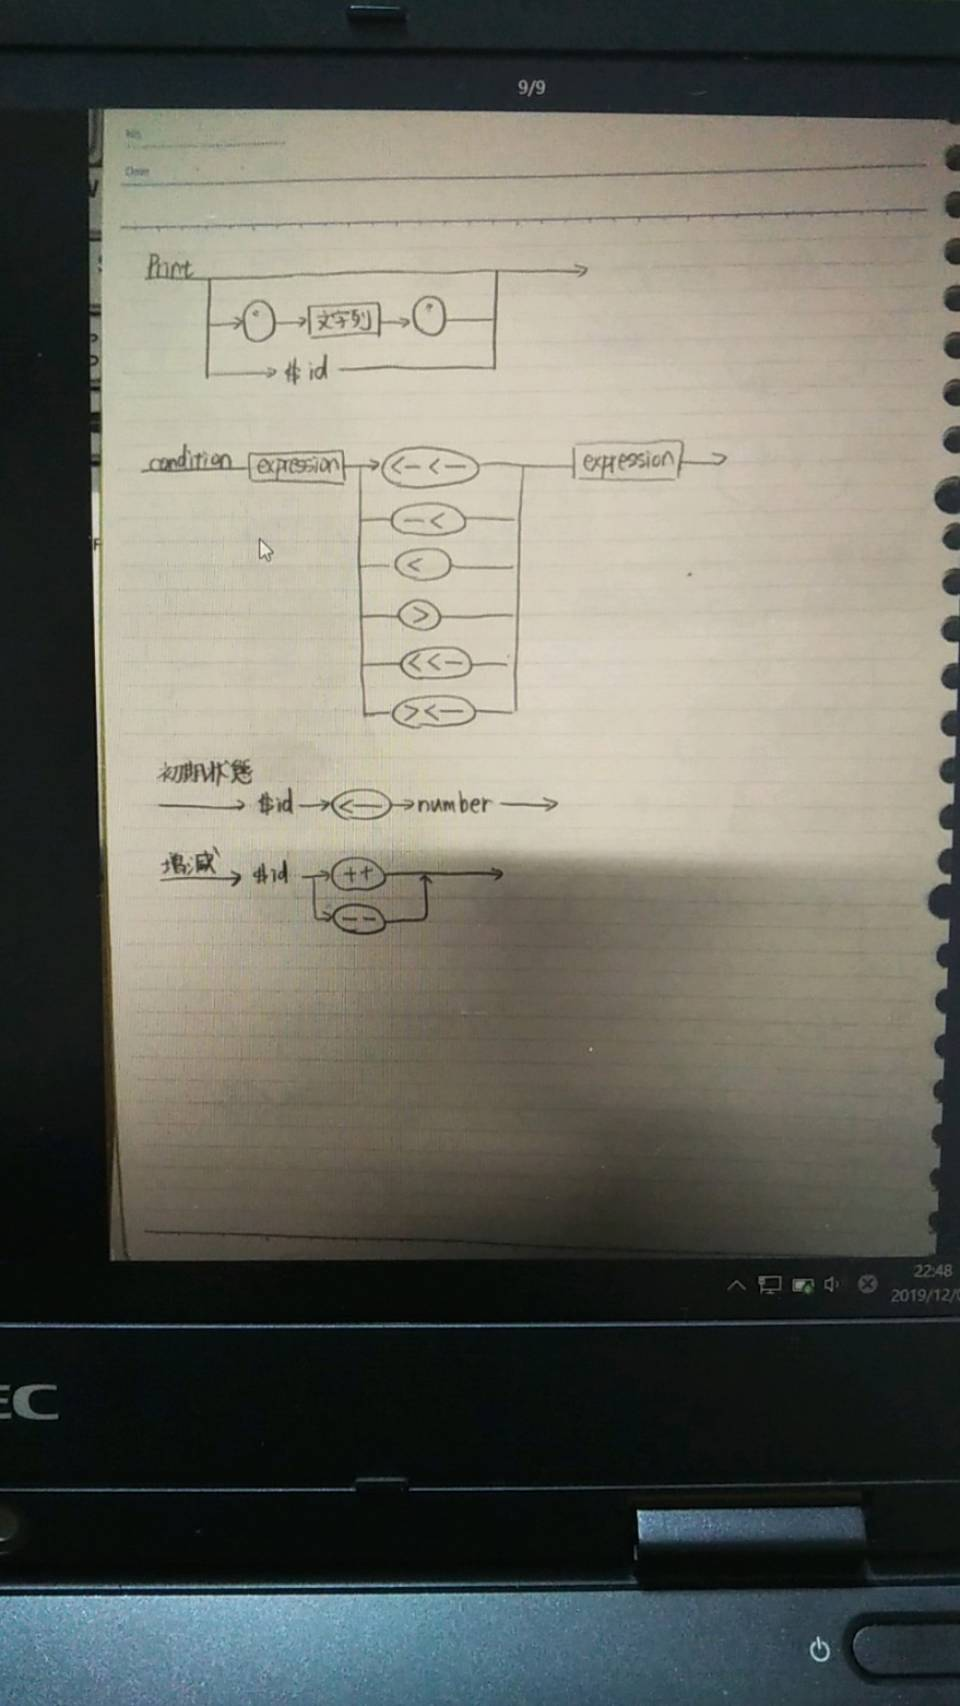 9/9
No.
Date
Print
" 文字列 "
$id
condition expression <-<- expression
-<
<
>
<<-
><-
初期状態
$id <- number
増減
$id ++
--
22:48
2019/12/
EC